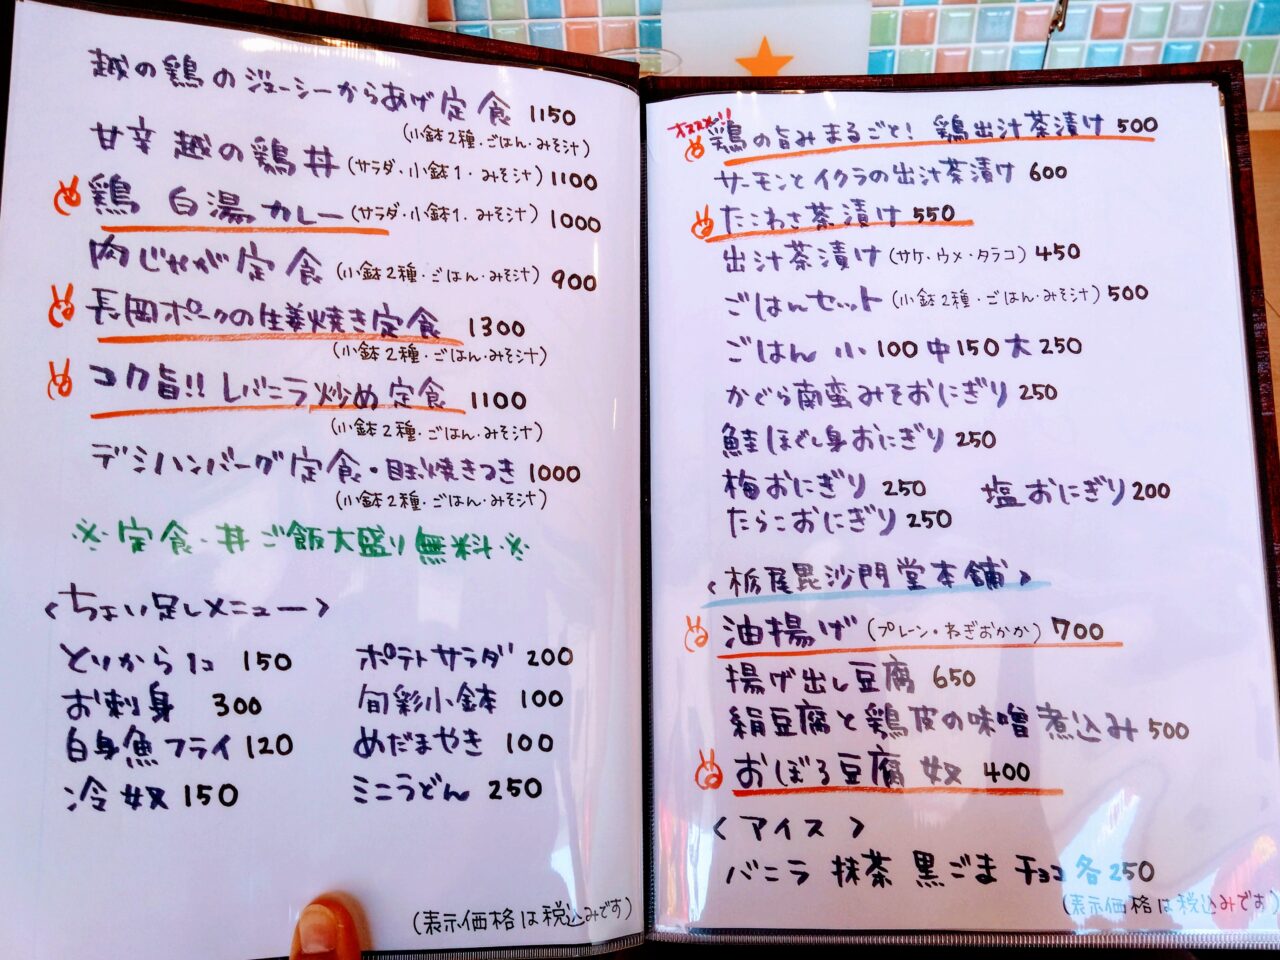 越の鶏のジューシーからあげ定食 1150
(小鉢2種・ごはん・みそ汁)
甘辛 越の鶏丼 (サラダ・小鉢1・みそ汁) 1100
鶏 白湯カレー (サラダ・小鉢1・みそ汁) 1000
肉じゃが定食 (小鉢2種・ごはん・みそ汁) 900
長岡ポークの生姜焼き定食 1300
(小鉢2種・ごはん・みそ汁)
コク旨!! レバニラ炒め定食 1100
(小鉢2種・ごはん・みそ汁)
デミハンバーグ定食・目玉焼きつき 1000
(小鉢2種・ごはん・みそ汁)
※定食・丼ご飯大盛り無料※
<ちょい足しメニュー>
とりから1コ 150 ポテトサラダ 200
お刺身 300 旬彩小鉢 100
白身魚フライ 120 めだまやき 100
冷奴 150 ミニうどん 250
(表示価格は税込みです)
オススメ!!
鶏の旨みまるごと! 鶏出汁茶漬け 500
サーモンとイクラの出汁茶漬け 600
たこわさ茶漬け 550
出汁茶漬け (サケ・ウメ・タラコ) 450
ごはんセット (小鉢2種・ごはん・みそ汁) 500
ごはん 小100 中150 大250
かぐら南蛮みそおにぎり 250
鮭ほぐし身おにぎり 250
梅おにぎり 250 塩おにぎり 200
たらこおにぎり 250
<栃尾毘沙門堂本舗>
油揚げ (プレーン・ねぎおかか) 700
揚げ出し豆腐 650
絹豆腐と鶏皮の味噌煮込み 500
おぼろ豆腐 奴 400
<アイス>
バニラ 抹茶 黒ごま チョコ 各250
(表示価格は税込みです)